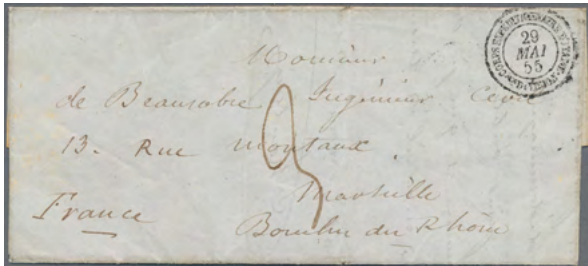 29
MAI
55
Monsieur
de Beausobre Ingénieur Civil
13. Rue Montaux
Marseille
France
Bouches du Rhône